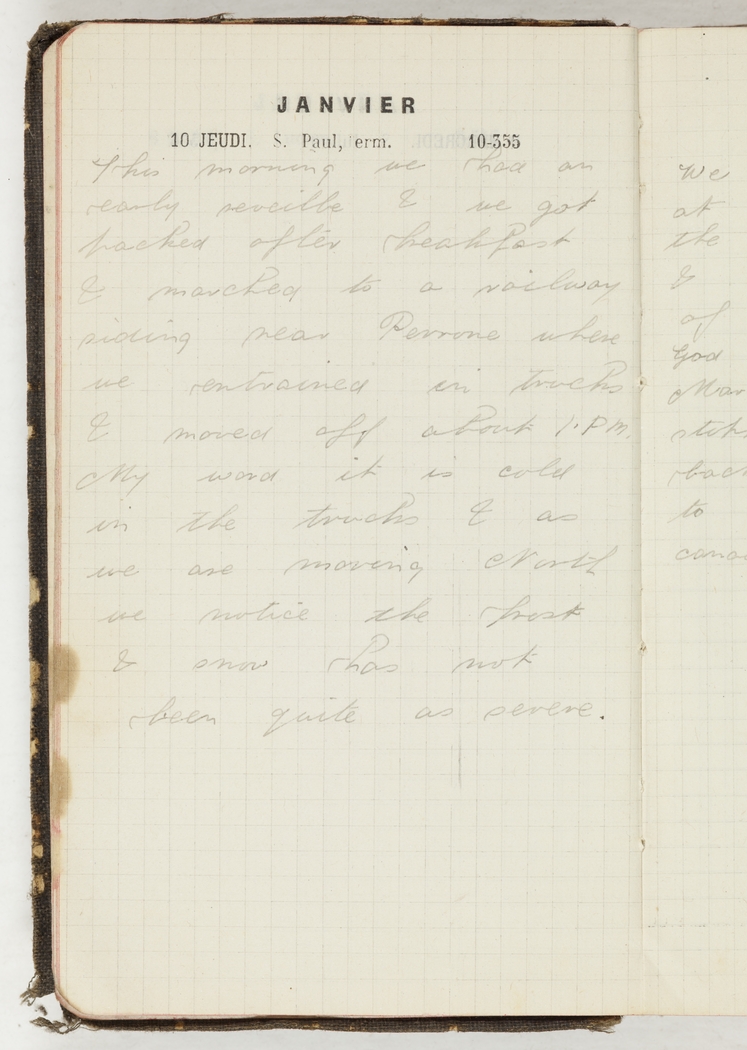 JANVIER
10 JEUDI. S. Paul, erm. 10-355
This morning we had an
early reveille & we got
packed after breakfast
& marched to a railway
siding near Perrone where
we entrained in trucks
& moved off about 1.P.M.
My word it is cold
in the trucks & as
we are moving North
we notice the frost
& snow has not
been quite as severe.
We
at
the
&
of
God
to